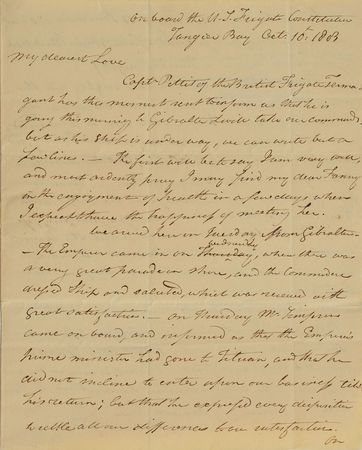 On board the U.S. Frigate Constitution
Tangier Bay Oct. 10th. 1803
My dearest Love
Capt. Pettit of the British Frigate Terma-
gant has this moment sent to inform us that he is
going this morning to Gibralter & will take our commands
but as his Ship is under way, we can write but a
few lines. — The first will be to say I am very well,
and most ardently pray I may find my dear Fanny
in the enjoyment of health in a few days when
I expect to have the happiness of meeting her.
We arrived here on Tuesday from Gibralter
wednesday
— The Emperor came in on Thursday, when there was
a very great parade on shore, and the Commodore
dressed Ship and saluted, which was received with
great satisfaction. — On Thursday Mr. Simpson
came on board, and informed us that the Emperors
prime minister had gone to Tetuan, and that he
did not incline to enter upon our business till
his return; but that he expressed every disposition
to settle all our differences to our satisfaction.
on